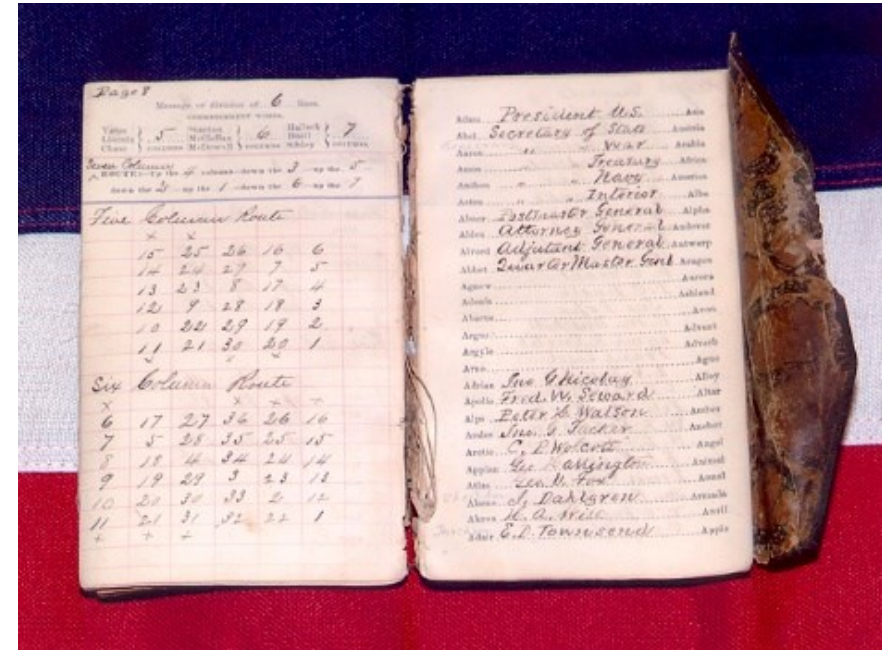 Page 8
Message or division of 6 lines.
COMMENCEMENT WORDS.
Valor Stanton Halleck
Lincoln } 5 McClellan } 6 Buell } 7
Chase COLUMNS McDowell COLUMNS Sibley COLUMNS.
Seven Column
ROUTE:—Up the 4 column—down the 3—up the 5
down the 2—up the 1—down the 6—up the 7
Five Column Route
x x
15 25 26 16 6
14 24 27 7 5
13 23 8 17 4
12 9 28 18 3
10 22 29 19 2
11 21 30 20 1
Six Column Route
6 17 27 36 26 16
7 5 28 35 25 15
8 18 4 34 24 14
9 19 29 3 23 13
10 20 30 33 2 12
11 21 31 32 22 1
+ + +
Adam President U.S. Asia
Abel Secretary of State Austria
Aaron " " War Arabia
" " Treasury Africa
" " Navy America
" " Interior
Abner Postmaster General Alpha
Alden Attorney General
Alfred Adjutant General Antwerp
Abbot QuarterMaster Genl Aragon
Agnew Aurora
Adonis Ashland
Avon
Argus Advent
Argyle Adverb
Ague
Adrian Jno G Nicolay Alloy
Apollo Fred. W. Seward Altar
Alps Peter H Watson Amber
Jno. Tucker Anchor
Arctic C. P. Wolcott Angel
Appian Geo Harrington Animal
Atlas Geo. V. Fox Annal
J. Dahlgren
H. A. Wise Anvil
Adair E. D. Townsend Apple